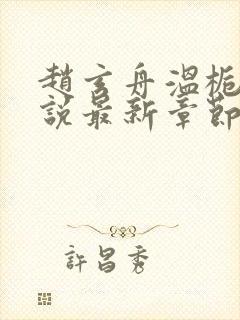 趙玄舟溫栀
說最新章節
許昌秀